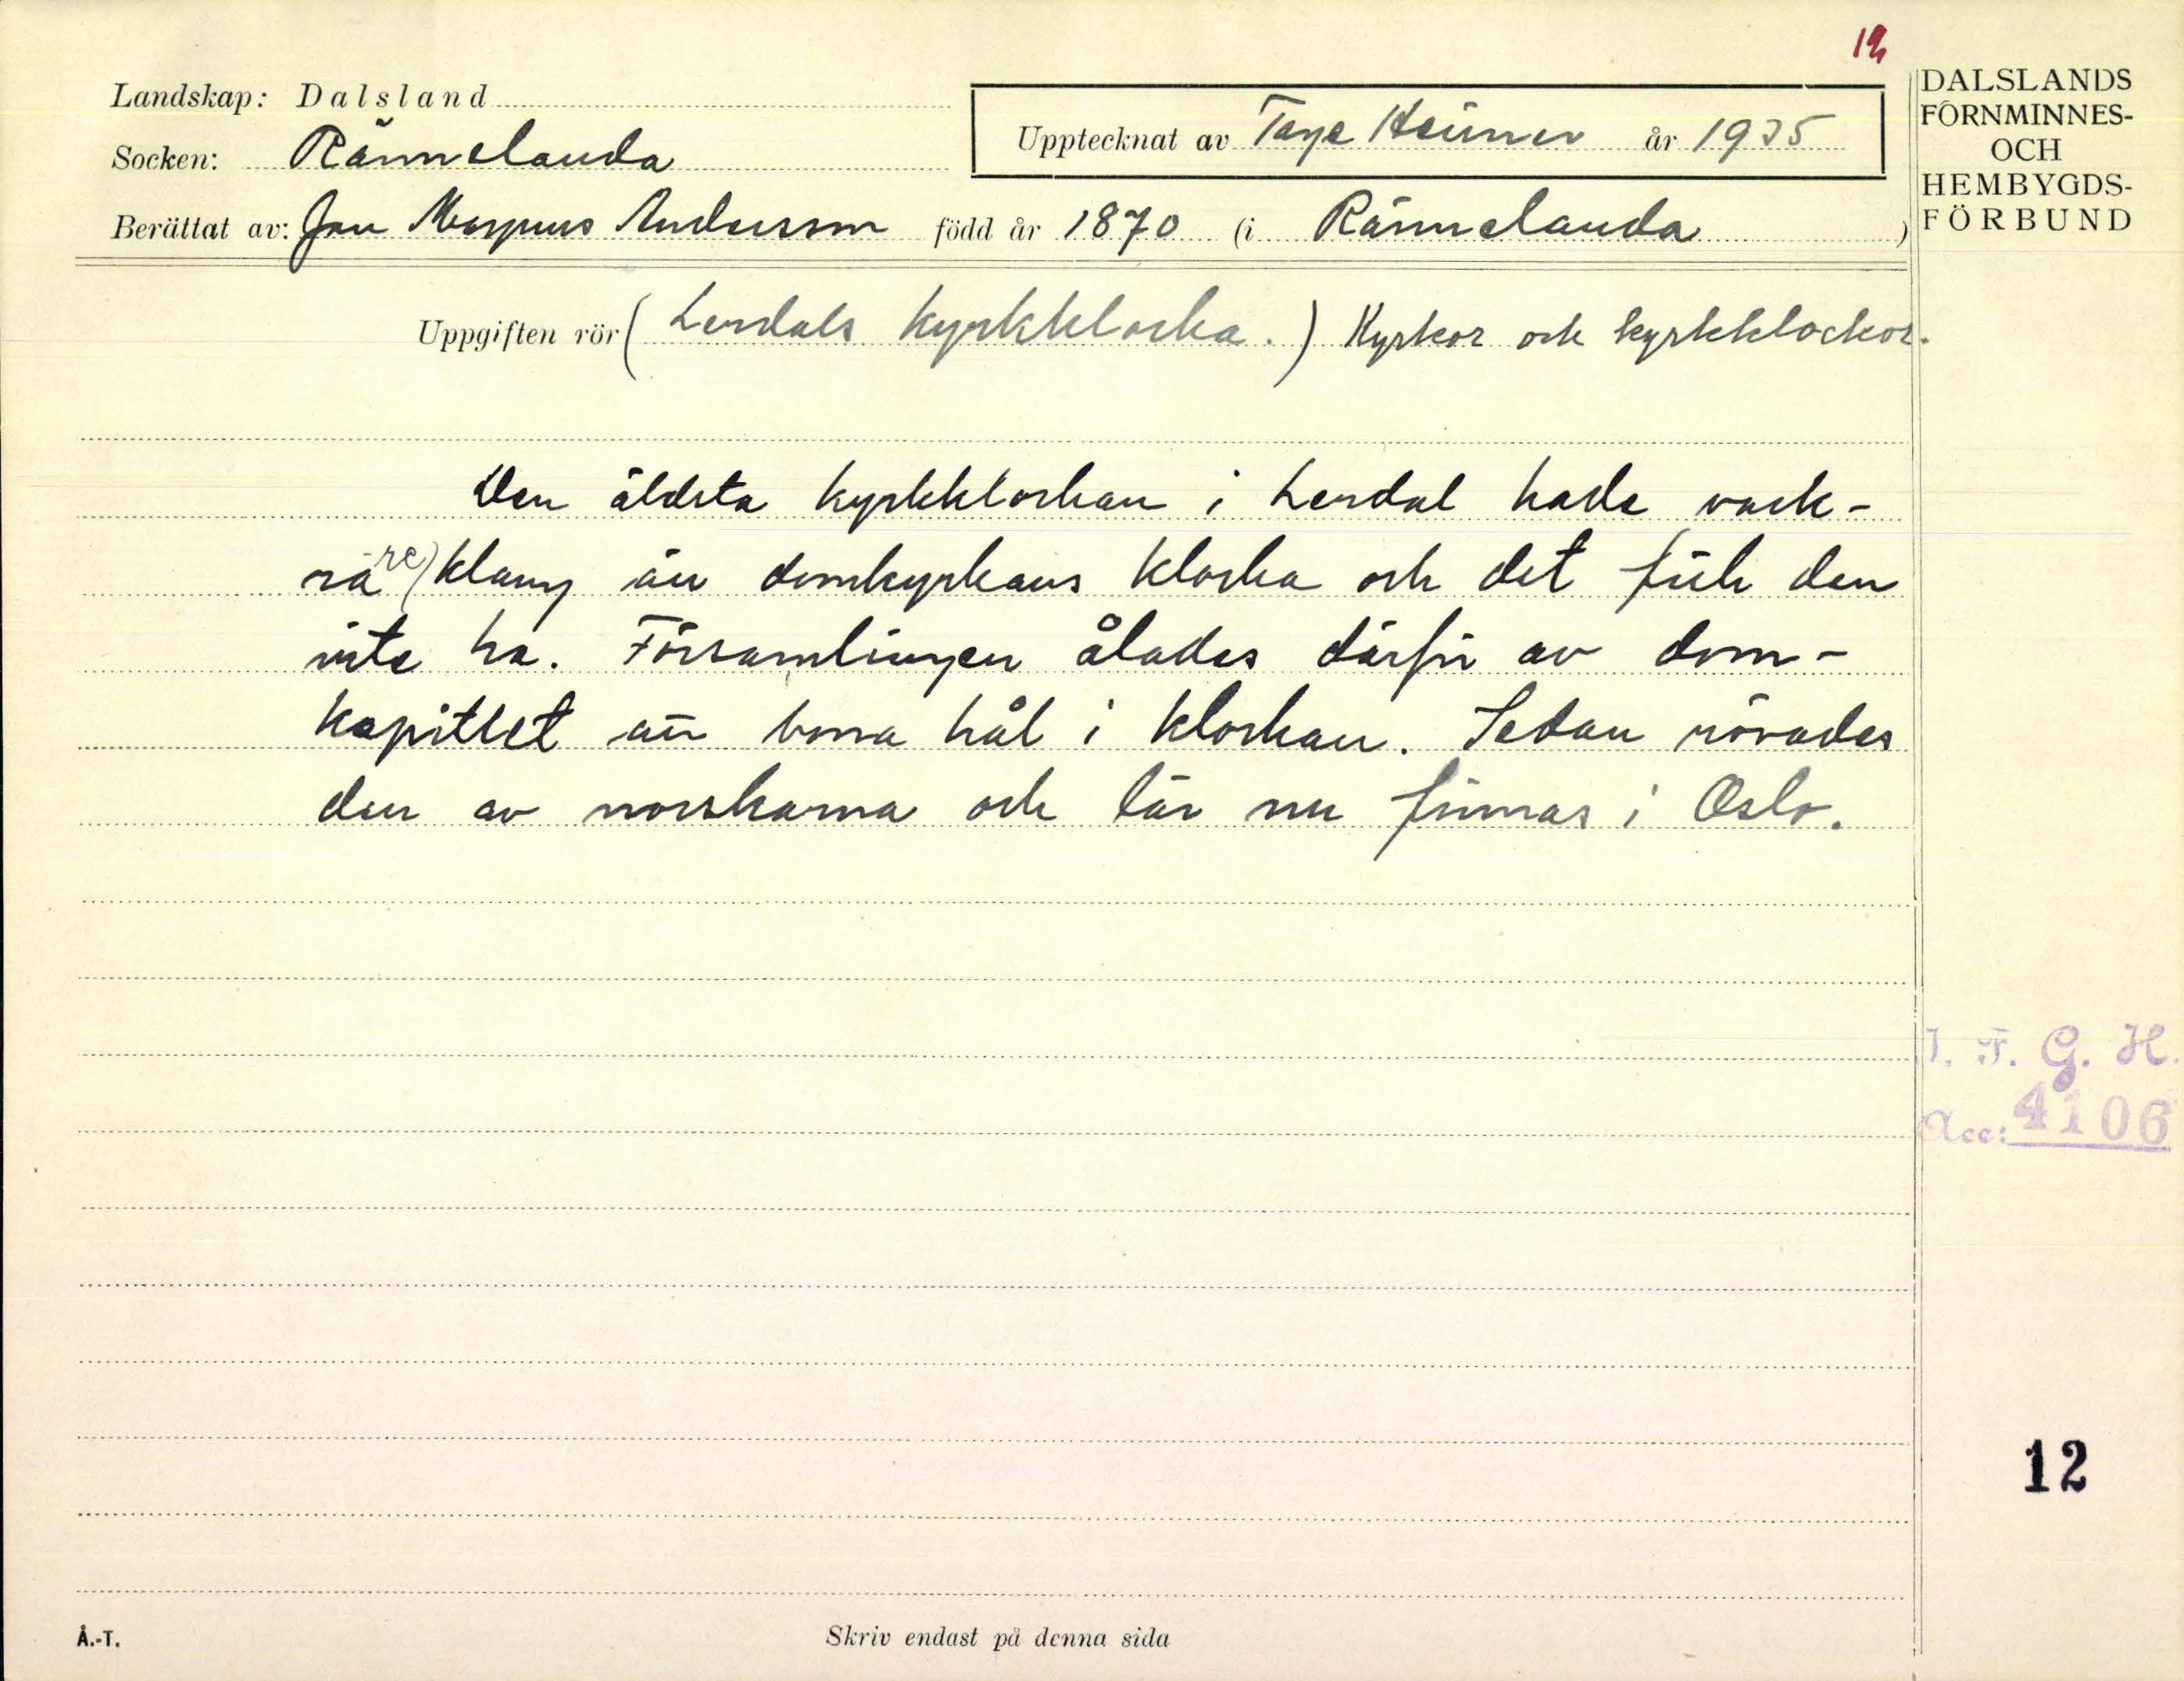 12
Landskap: Dalsland
Socken: Rännelanda
Upptecknat av Tage Heimer år 1935
Berättat av: Jan Magnus Andersson född år 1870 (i Rännelanda)
DALSLANDS
FORNMINNES-
OCH
HEMBYGDS-
FÖRBUND
Uppgiften rör (Lerdals kyrkklocka.) Kyrkor och kyrkklockor.
Den äldsta kyrkklockan i Lerdal hade vack-
ra(re) klang än domkyrkans klocka och det fick den
inte ha. Församlingen ålades därför av dom-
kapitlet att borra hål i klockan. Sedan rövades
den av norskarna och lär nu finnas i Oslo.
I. F. G. H.
Acc: 4106
12
Å.-T.
Skriv endast på denna sida